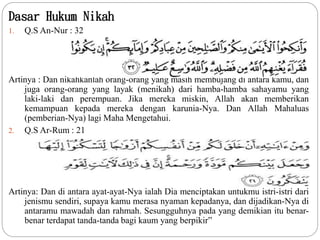 Dasar Hukum Nikah
1. Q.S An-Nur : 32
وَأَنكِحُوا۟ ٱلْأَيَـٰمَىٰ مِنكُمْ وَٱلصَّـٰلِحِينَ مِنْ عِبَادِكُمْ وَإِمَآئِكُمْ ۚ إِن يَكُونُوا۟
فُقَرَآءَ يُغْنِهِمُ ٱللَّهُ مِن فَضْلِهِۦ ۗ وَٱللَّهُ وَٰسِعٌ عَلِيمٌ ﴿٣٢﴾
Artinya : Dan nikahkanlah orang-orang yang masih membujang di antara kamu, dan
juga orang-orang yang layak (menikah) dari hamba-hamba sahayamu yang
laki-laki dan perempuan. Jika mereka miskin, Allah akan memberikan
kemampuan kepada mereka dengan karunia-Nya. Dan Allah Mahaluas
(pemberian-Nya) lagi Maha Mengetahui.
2. Q.S Ar-Rum : 21
وَمِنْ ءَايَـٰتِهِۦٓ أَنْ خَلَقَ لَكُم مِّنْ أَنفُسِكُمْ أَزْوَٰجًا لِّتَسْكُنُوٓا۟ إِلَيْهَا
وَجَعَلَ بَيْنَكُم مَّوَدَّةً وَرَحْمَةً ۚ إِنَّ فِى ذَٰلِكَ لَـَٔايَـٰتٍ لِّقَوْمٍ
يَتَفَكَّرُونَ ﴿٢١﴾
Artinya: Dan di antara ayat-ayat-Nya ialah Dia menciptakan untukmu istri-istri dari
jenismu sendiri, supaya kamu merasa nyaman kepadanya, dan dijadikan-Nya di
antaramu mawadah dan rahmah. Sesungguhnya pada yang demikian itu benar-
benar terdapat tanda-tanda bagi kaum yang berpikir”